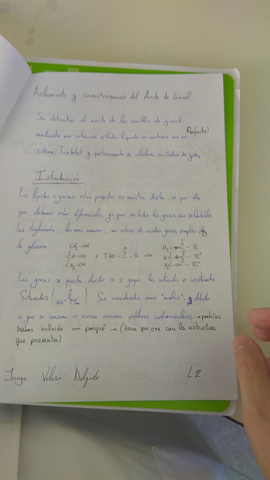 Aislamiento y caracterización del Aceite de Girasol
Se obtendrá el aceite de las semillas de girasol
Perfecto!
mediante una extracción sólido líquido en continuo con un
sistema Soxhlet y posteriormente se
Introducción
Los lípidos o grasas están presentes en nuestra dieta, es por ello
que debemos saber diferenciarlas, ya que no todas las grasas son saludables.
Los triglicéridos, los más comunes, son ésteres de ácidos grasos simples de
la glicerina.
CH2-OH
CH-OH + 3 HO-C-R →
CH2-OH
Las grasas se pueden dividir en 2 grupos: las saturadas e insaturadas
Saturadas Son consideradas como "malas", debido
a que se consumen en exceso provocan problemas cardiovasculares → podrías
haber incluido un porqué → (tiene que ver con la estructura
que presenta)
Jorge Velasco Delgado L2